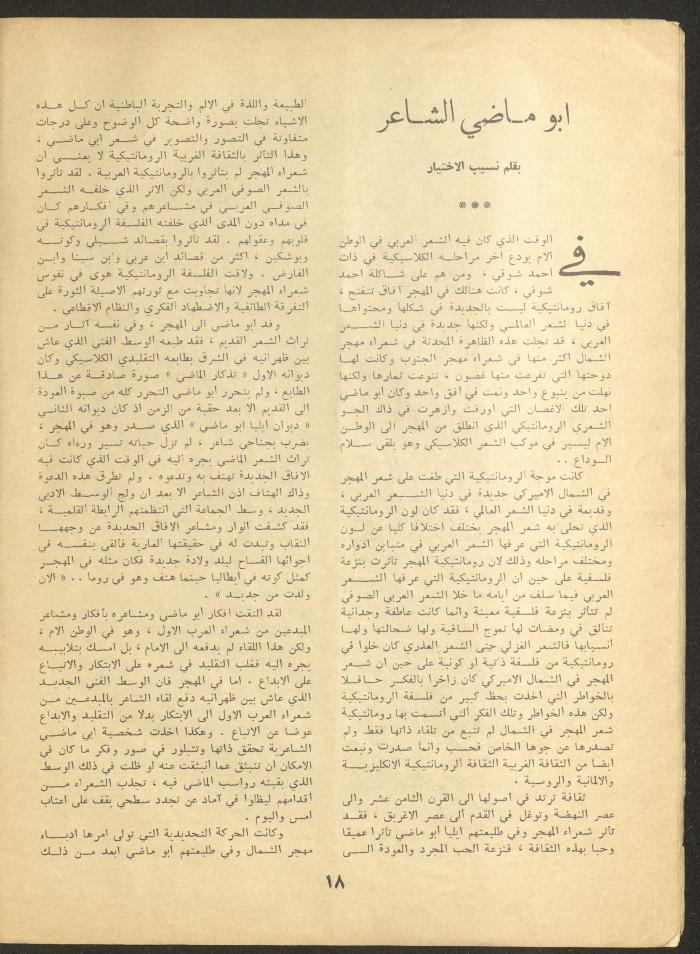 ابو مـاضي الشـاعر
بقلم نسيب الاختيار
***
في الوقت الذي كان فيه الشعر العربي في الوطن
الام يودع آخر مراحلـه الكلاسيكية في ذات
احمد شوقي ، ومن هم على شـاكلة احمد
شوقي ، كانت هنالك في المهجر آفاق تتفتح ،
آفاق رومانتيكية ليست بالجديدة في شكلها ومحتواها
في دنيا الشعر العالمي ولكنها جديدة في دنيا الشـــعر
العربي ، قد تجلت هذه الظاهرة المحدثة في شعراء مهجر
الشمال اكثر منها في شعراء مهجر الجنوب وكانت لهـا
دوحتها التي تفرعت منها غصون ، تنوعت ثمارها ولكنها
نهلت من ينبوع واحد ونمت في افق واحد وكان أبو ماضي
احد تلك الاغصان التي اورقت وازهرت في ذاك الجـو
الشعري الرومانتيكي الذي انطلق من المهجر الى الوطـن
الام ليسير في موكب الشعر الكلاسيكي وهو يلقي سـلام
الـوداع . .
كانت موجة الرومانتيكية التي طغت على شعر المهجر
في الشمال الاميركي جديدة في دنيا الشـــعر العربي ،
وقديمة في دنيا الشعر العالمي ، فقد كان لون الرومانتيكية
الذي تحلى به شعر المهجر يختلف اختلافا كليا عن لـون
الرومانتيكية التي عرفها الشعر العربي في متباين ادواره
ومختلف مراحله وذلك لان رومانتيكية المهجر تأثرت بنزعة
فلسفية على حين ان الرومانتيكية التي عرفها الشـــعر
العربي فيما سلف من ايامه ما خلا الشعر العربي الصوفي
لم تتأثر بنزعة فلسفية معينة وانما كانت عاطفة وجدانية
تتألق في ومضات لها تموج الساقية ولها ضحالتها ولهـا
انسيابها فالشعر الغزلي حتى الشعر العذري كان خلوا في
رومانتيكية من فلسفة ذاتية او كونية على حين ان شـعر
المهجر في الشمال الاميركي كان زاخرا بالفكـر حـافـلا
بالخواطر التي اخذت بحظ كبير من فلسفة الرومانتيكية
ولكن هذه الخواطر وتلك الفكر التي اتسمت بها رومانتيكية
شعر المهجر في الشمال لم تنبع من تلقاء ذاتها فقط ولم
تصدرها عن جوها الخاص فحسب وانما صدرت ونبعت
ايضا من الثقافة الغربية الثقافة الرومانتيكية الانكليزيـة
والالمانية والروسية .
ثقافة ترتد في اصولها الى القرن الثامن عشر والى
عصر النهضة وتوغل في القدم الى عصر الاغريق ، فقـد
تأثر شعراء المهجر وفي طليعتهم ايليا ابو ماضي تأثرا عميقا
وحبا بهذه الثقافة ، فنزعة الحب المجرد والعودة الـــى
الطبيعة واللذة في الالم والتجربة الباطنية ان كـل هـذه
الاشياء تجلت بصورة واضحة كل الوضوح وعلى درجات
متفاوتة في التصور والتصوير في شعر ابي ماضـي ،
وهذا التأثر بالثقافة الغربية الرومانتيكية لا يعنـــي ان
شعراء المهجر لم يتأثروا بالرومنتيكية العربية . لقد تأثروا
بالشعر الصوفي العربي ولكن الاثر الذي خلفـه الشـعر
الصوفـي العربـي في مشـاعرهم وفي افكـارهم كـان
في مداه دون المدى الذي خلفته الفلسفة الرومانتيكية في
قلوبهم وعقولهم . لقد تأثروا بقصائد شـيلي وكوتـه
وبوشكين ، اكثر من قصائد ابن عربي وابن سينا وابـن
الفارض . ولاقت الفلسفة الرومانتيكية هوى في نفوس
شعراء المهجر لانها تجاوبت مع ثورتهم الاصيلة الثورة على
التفرقة الطائفية والاضطهاد الفكري والنظام الاقطاعي .
وفد ابو ماضي الى المهجر ، وفي نفسه آثـار مـن
تراث الشعر القديم ، فقد طبعه الوسط الفني الذي عاش
بين ظهرانيه في الشرق بطابعه التقليدي الكلاسيكي وكان
ديوانه الاول « تذكار الماضي » صورة صادقـة عن هـذا
الطابع ، ولم يتحرر ابو ماضي التحرر كله من صبوة العودة
الى القديم الا بعد حقبة من الزمن اذ كان ديوانه الثاني
« ديوان ايليا ابو ماضي » الذي صـدر وهو في المهجر ،
نضرب بجناحي شاعر ، لم تزل حياته تسير وراءه كـان
تراث الشعر الماضي يجره اليه في الوقت الذي كانت فيه
الآفاق الجديدة تهتف به وتدعوه . ولم تطرق هذه الدعوة
وذاك الهتاف اذن الشاعر الا بعد ان ولج الوسـط الادبي
الجديد ، وسط الجماعة التي انتظمتهم الرابطة القلميـة ،
فقد كشفت انوار ومشاعر الآفاق الجديدة عن وجههـا
النقاب وتبدت له في حقيقتها العارية فألقى بنفســه في
اجوائها الفساح ليلد ولادة جديدة فكان مثله في المهجـر
كمثل كوته في ايطاليا حينما هتف وهو في روما . . « الان
ولدت من جديـد » .
لقد التقت افكار ابو ماضي ومشاعره بأفكار ومشاعر
المبدعين من شعراء العرب الاول ، وهو في الوطن الام ،
ولكن هذا اللقاء لم يدفعه الى الامام ، بل امسك بتلابيبـه
يجره اليه فقلب التقليد في شعره على الابتكار والاتبـاع
على الابداع . اما في المهجر فان الوسط الفني الجديـد
الذي عاش بين ظهرانيه دفع لقاء الشاعر بالمبدعيـن مـن
شعراء العرب الاول الى الابتكار بدلا من التقليد والابداع
عوضا عن الاتباع . وهكذا اخذت شخصية ابي ماضـي
الشاعرية تحقق ذاتها وتتبلور في صور وفكر ما كان في
الامكان ان تنبثق عما انبثقت عنه لو ظلت في ذلك الوسط
الذي بقيته رواسب الماضي فيه ، تجذب الشعراء مـــن
اقدامهم ليظلوا في آماد عن تجدد سطحي يقف على اعتاب
امس واليوم .
وكانت الحركة التجديدية التي تولى امرها ادبـاء
مهجر الشمال وفي طليعتهم ابو ماضي ابعد مـن ذلـك
١٨